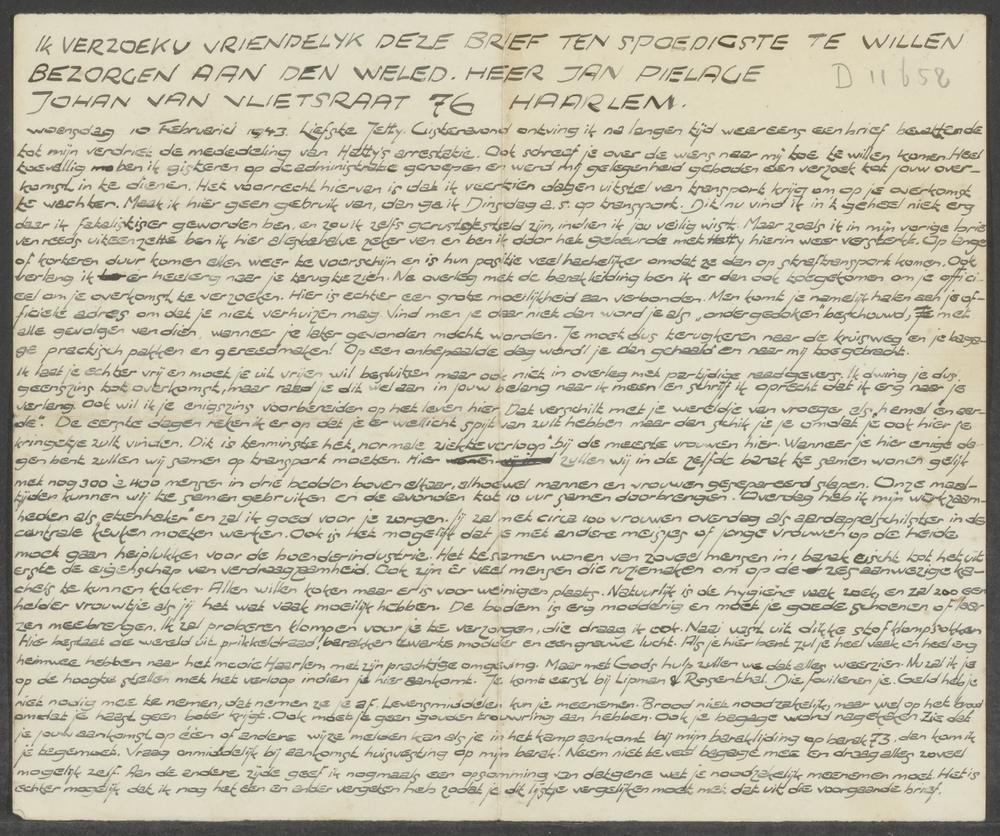 IK VERZOEK U VRIENDELYK DEZE BRIEF TEN SPOEDIGSTE TE WILLEN
BEZORGEN AAN DEN WELED. HEER JAN PIELAGE
D 11658
JOHAN VAN VLIETSRAAT 76 HAARLEM.
woensdag 10 Februarici 1943. Liefste Jetty. Gisteravond ontving ik na langen tijd weer eens een brief bevattende
tot mijn verdriet de mededeling van Hetty's arrestatie. Ook schreef je over de wens naar mij toe te willen komen. Heel
toevallig ben ik gisteren op de administratie geroepen en werd mij gelegenheid geboden een verzoek tot jouw over-
komst in te dienen. Het voorrecht hiervan is dat ik veertien dagen uitstel van transport krijg om op je overkomst
te wachten. Maak ik hier geen gebruik van, dan ga ik Dinsdag a.s. op transport. Dit nu vind ik in 't geheel niet erg
daar ik fatalistiser geworden ben, en zou ik zelfs gerustgesteld zijn, indien ik jou veilig wist. Maar zoals ik in mijn vorige brie
ven reeds uiteenzette ben ik hier allesbehalve zeker van en ben ik door het gebeurde met Hetty hierin weer versterkt. Op lange
of korteren duur komen allen weer te voorschijn en is hun positie veel hachelijker omdat ze dan op straftransport komen. Ook
verlang ik er heel erg naar je terug te zien. Na overleg met de barakleiding ben ik er dan ook toegekomen om je offici-
eel om je overkomst te verzoeken. Hier is echter een grote moeilijkheid aan verbonden. Men komt je namelijk halen aan je of-
ficiele adres om dat je niet verhuizen mag. Vind men je daar niet dan word je als „ondergedoken" beschouwd, met
alle gevolgen van dien, wanneer je later gevonden mocht worden. Je moet dus terugkeren naar de kruisweg en je baga-
ge practisch pakken en gereedmaken! Op een onbepaalde dag word je dan gehaald en naar mij toegebracht.
Ik laat je echter vrij en moet je uit vrijen wil besluiten maar ook niet in overleg met partijdige raadgevers. Ik dwing je dus
geenszins tot overkomst, maar raad je dit wel aan in jouw belang naar ik meen en schrijf ik oprecht dat ik erg naar je
verlang. Ook wil ik je enigszins voorbereiden op het leven hier. Dat verschilt met je wereldje van vroeger als „hemel en aar-
de". De eerste dagen reken ik er op dat je er wellicht spijt van zult hebben maar dan schik je je omdat je ook hier je
kringetje zult vinden. Dit is tenminste het „normale ziekteverloop" bij de meeste vrouwen hier. Wanneer je hier enige da-
gen bent zullen wij samen op transport moeten. Hier zullen wij in de zelfde barak te samen wonen gelijk
met nog 300 à 400 mensen in drie bedden boven elkaar, alhoewel mannen en vrouwen gesepareerd slapen. Onze maal-
tijden kunnen wij te samen gebruiken en de avonden tot 10 uur samen doorbrengen. Overdag heb ik mijn werkzaam-
heden als „etenhaler" en zal ik goed voor je zorgen. Jij zal met circa 100 vrouwen overdag als aardappelschilster in de
centrale keuken moeten werken. Ook is het mogelijk dat je met andere meisjes of jonge vrouwen op de heide
moet gaan heiplukken voor de hoenderindustrie. Het tesamen wonen van zoveel mensen in 1 barak eischt tot het uit
erste de eigenschap van verdraagzaamheid. Ook zijn er veel mensen die ruziemaken om op de zes aanwezige ka-
chels te kunnen koken. Allen willen koken maar er is voor weinigen plaats. Natuurlijk is de hygiëne vaak zoek, en zal zoo een
helder vrouwtje als jij het wat vaak moeilijk hebben. De bodem is erg modderig en moet je goede schoenen of laar
zen meebrengen. Ik zal proberen klompen voor je te verzorgen, die draag ik ook. Naai vast uit dikke stof klompsokken
Hier bestaat de wereld uit prikkeldraad, barakken zwarte modder en een grauwe lucht. Als je hier bent zul je heel vaak en heel erg
heimwee hebben naar het mooie Haarlem, met zijn prachtige omgeving. Maar met Gods hulp zullen we dat alles weerzien. Nu zal ik je
op de hoogte stellen met het verloop indien je hier aankomt. Je komt eerst bij Lipman & Rosenthal. Die fouilleren je. Geld heb je
niet nodig mee te nemen, dat nemen ze je af. Levensmiddelen kun je meenemen. Brood niet noodzakelijk, maar wel op het brood
omdat je haast geen boter krijgt. Ook moet je geen gouden trouwring aan hebben. Ook je bagage word nagekeken. Zie dat
je jouw aankomst op één of andere wijze melden kan als je in het kamp aankomt bij mijn barakleiding op barak 73, dan kom ik
je tegemoet. Vraag onmiddelijk bij aankomst huisvesting op mijn barak. Neem niet te veel bagage mee en draag alles zoveel
mogelijk zelf. Aan de andere zijde geef ik nogmaals een opsomming van datgene wat je noodzakelijk meenemen moet. Het is
echter mogelijk dat ik nog het één en ander vergeten heb zodat je dit lijstje vergelijken moet met dat uit die voorgaande brief.